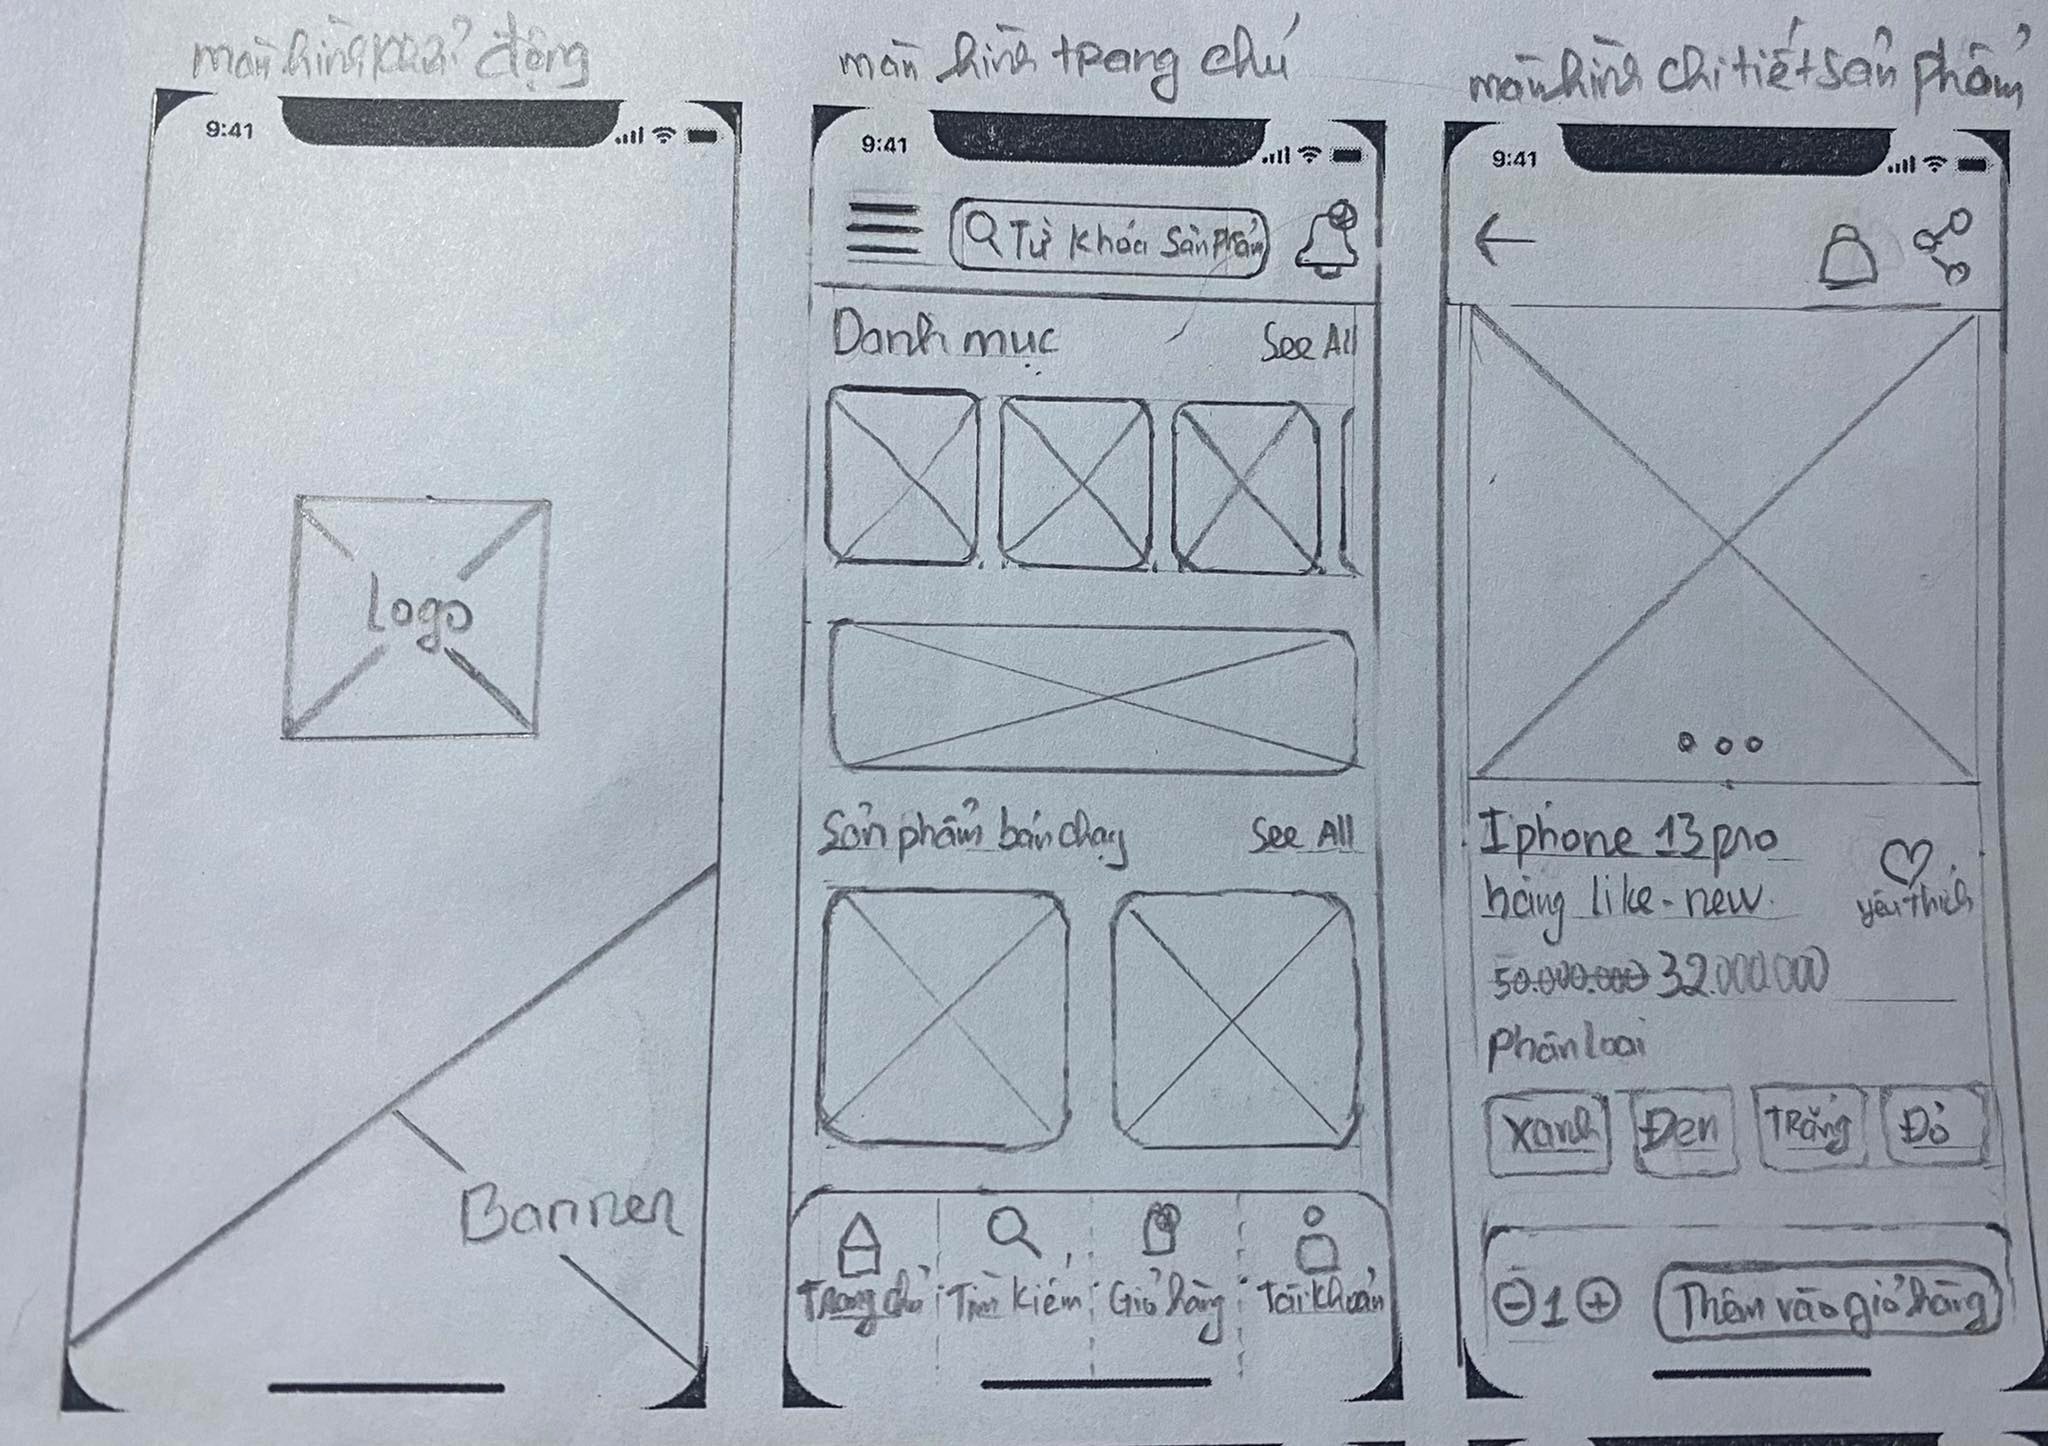 màn hình khởi động
9:41
Logo
Banner
màn hình trang chủ
9:41
Từ khóa sản phẩm
Danh mục
See All
Sản phẩm bán chạy
See All
Trang chủ
Tìm kiếm
Giỏ hàng
Tài khoản
màn hình chi tiết sản phẩm
9:41
Iphone 13 pro
hàng like-new
yêu thích
50.000.000 32.000.000
Phân loại
Xanh
Đen
Trắng
Đỏ
1
Thêm vào giỏ hàng